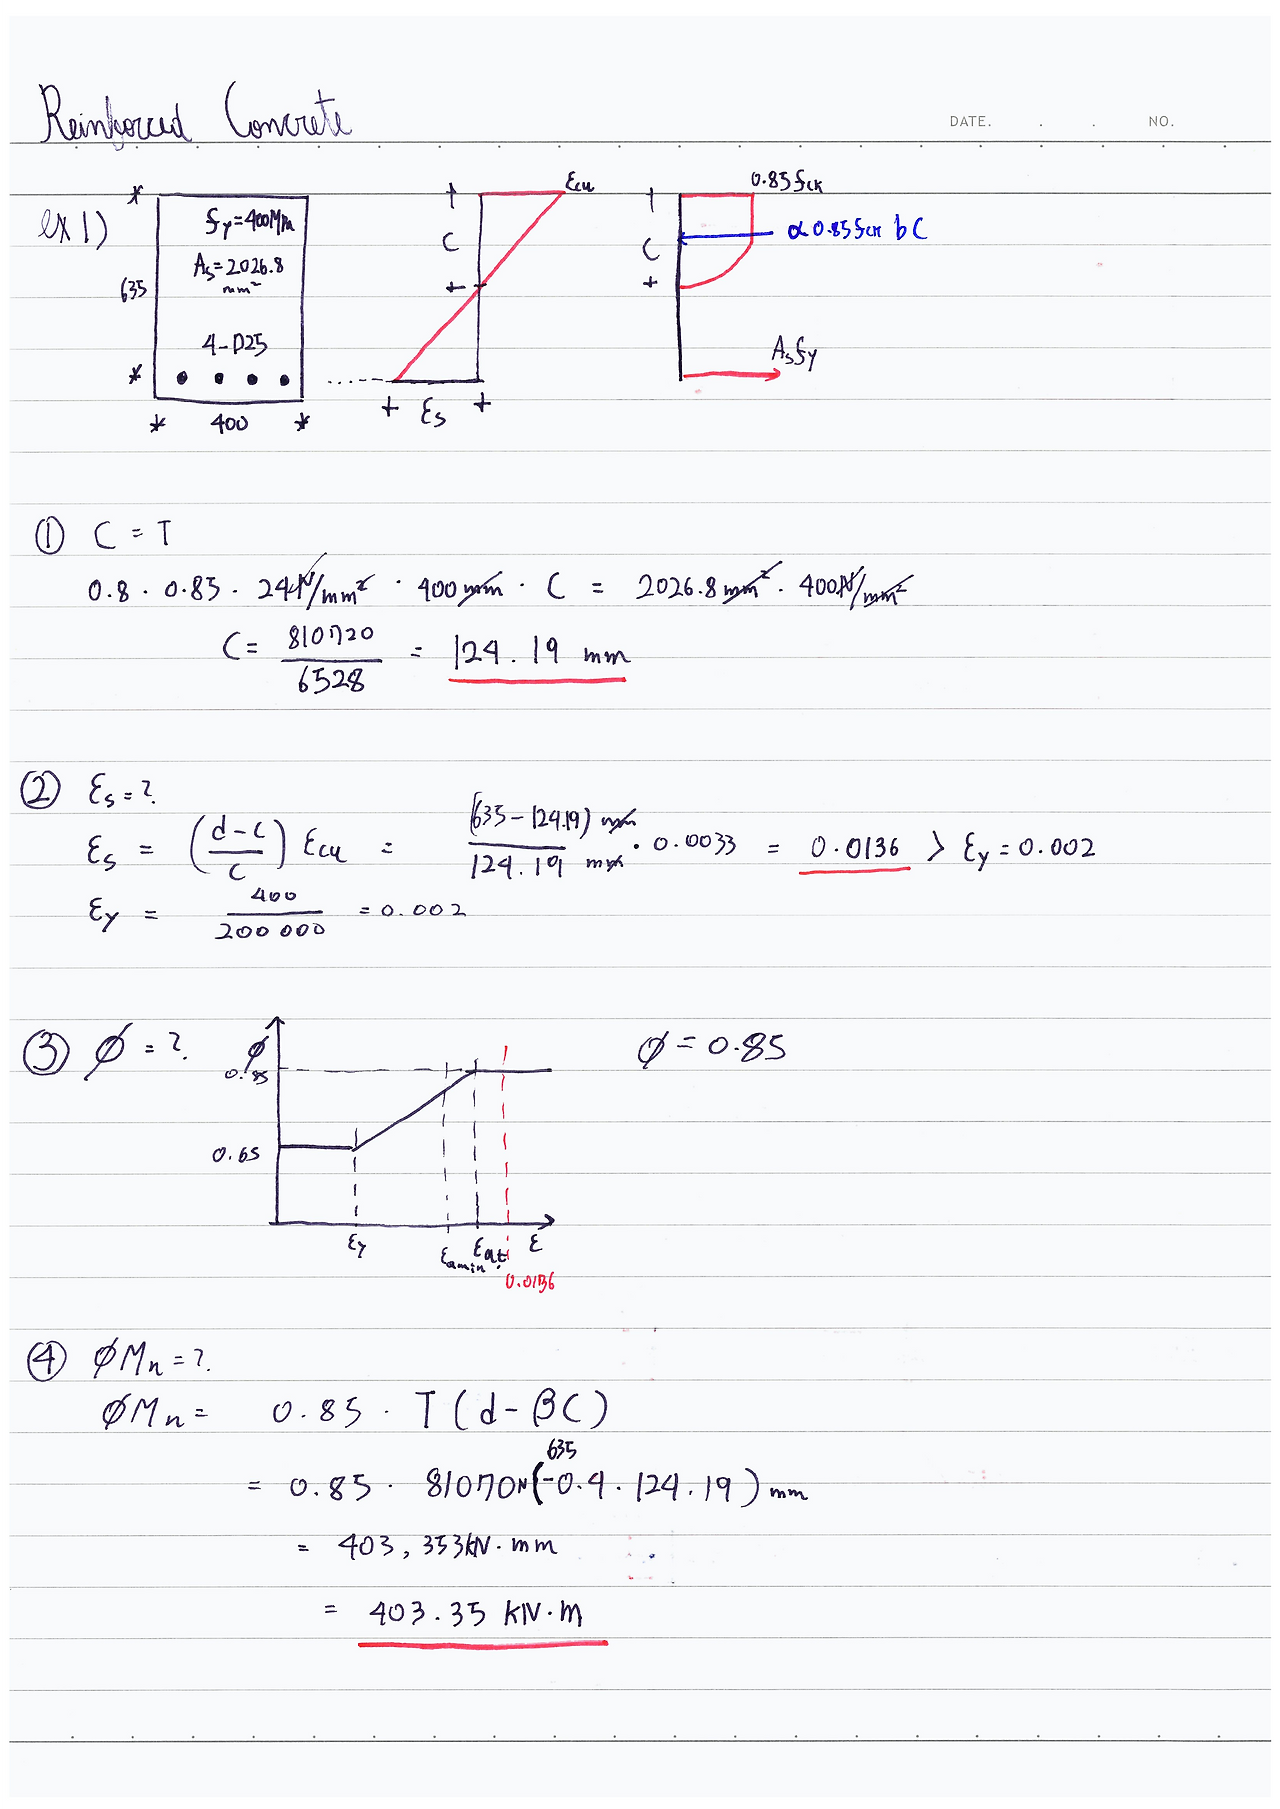 Reinforced Concrete
DATE. . . NO.
ex 1)
fy=400MPa
As=2026.8
mm²
4-D25
635
400
C
εcu
εs
C
0.85fck
α0.85fck bC
Asfy
① C = T
0.8 · 0.85 · 24N/mm² · 400mm · C = 2026.8mm² · 400N/mm²
C = 810720/6528 = 124.19 mm
② εs = ?
εs = ((d-c)/c) εcu = (635-124.19) mm/124.19 mm · 0.0033 = 0.0136 > εy = 0.002
εy = 400/200 000 = 0.002
③ ø = ?
ø
0.85
0.65
εy
εamin
εat
ε
0.0136
ø = 0.85
④ øMn = ?
øMn = 0.85 · T (d-βC)
= 0.85 · 810720N(635-0.4 · 124.19) mm
= 403,353kN·mm
= 403.35 kN·m